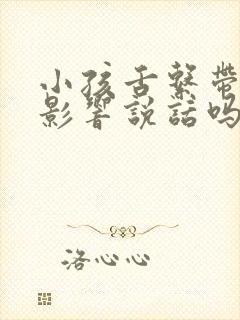 小孩舌繫帶
影響説話吗
洛心心